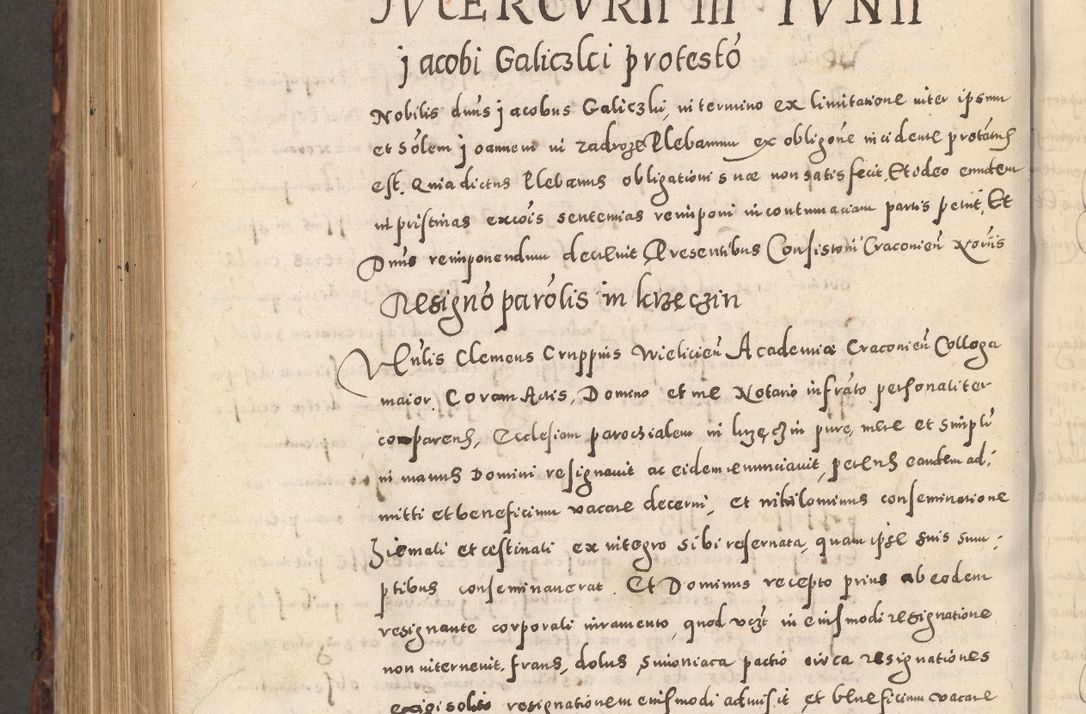 MERCVRII III IVNII
jacobi Galiczki protestó
Nobilis dnus jacobus Galiczki, in termino ex limitatione inter ipsum
et Sólem joannem in zadroze Plebanum ex obligone incidente protatus
est. Quia dictus Plebanus obligationi suae non satisfecit, Et ideo eundem
in pristinas excois sententias reimponi in contumaciam partis petiit, Et
Dnus reimponendum decrevit Presentibus Consistorii Craconien Notriis
Resignó parólis in krzęczin
Vnlis Clemens Cruppius Wielicien Academiae Craconien Collega
maior, Coram Actis, Domino et me Notario infrato personaliter
comparens, Ecclesiam parochialem in krzęczin pure, mere et simplr
in manus Domini resignavit ac eidem renunciavit, petens eandem ad:
mitti et beneficium vacare decerni, et nihilominus conseminatione
hiemali et aestinali ex integro sibi reservata, quam ipse suis sum:
ptibus conseminaverat. Et Dominus recepto prius ab eodem
resignante corporali iuramento, quod vczt in eiusmodi resignatione
non intervenit fraus, dolus, simoniaca pactio circa resignationes
exigi solito resignationem eiusmodi admisit et beneficium vacare